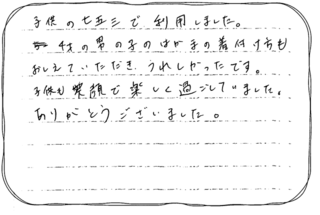 子供の七五三で利用しました。
4才の男の子のはかまの着付け方も
おしえていただき、うれしかったです。
子供も笑顔で楽しく過ごしていました。
ありがとうございました。